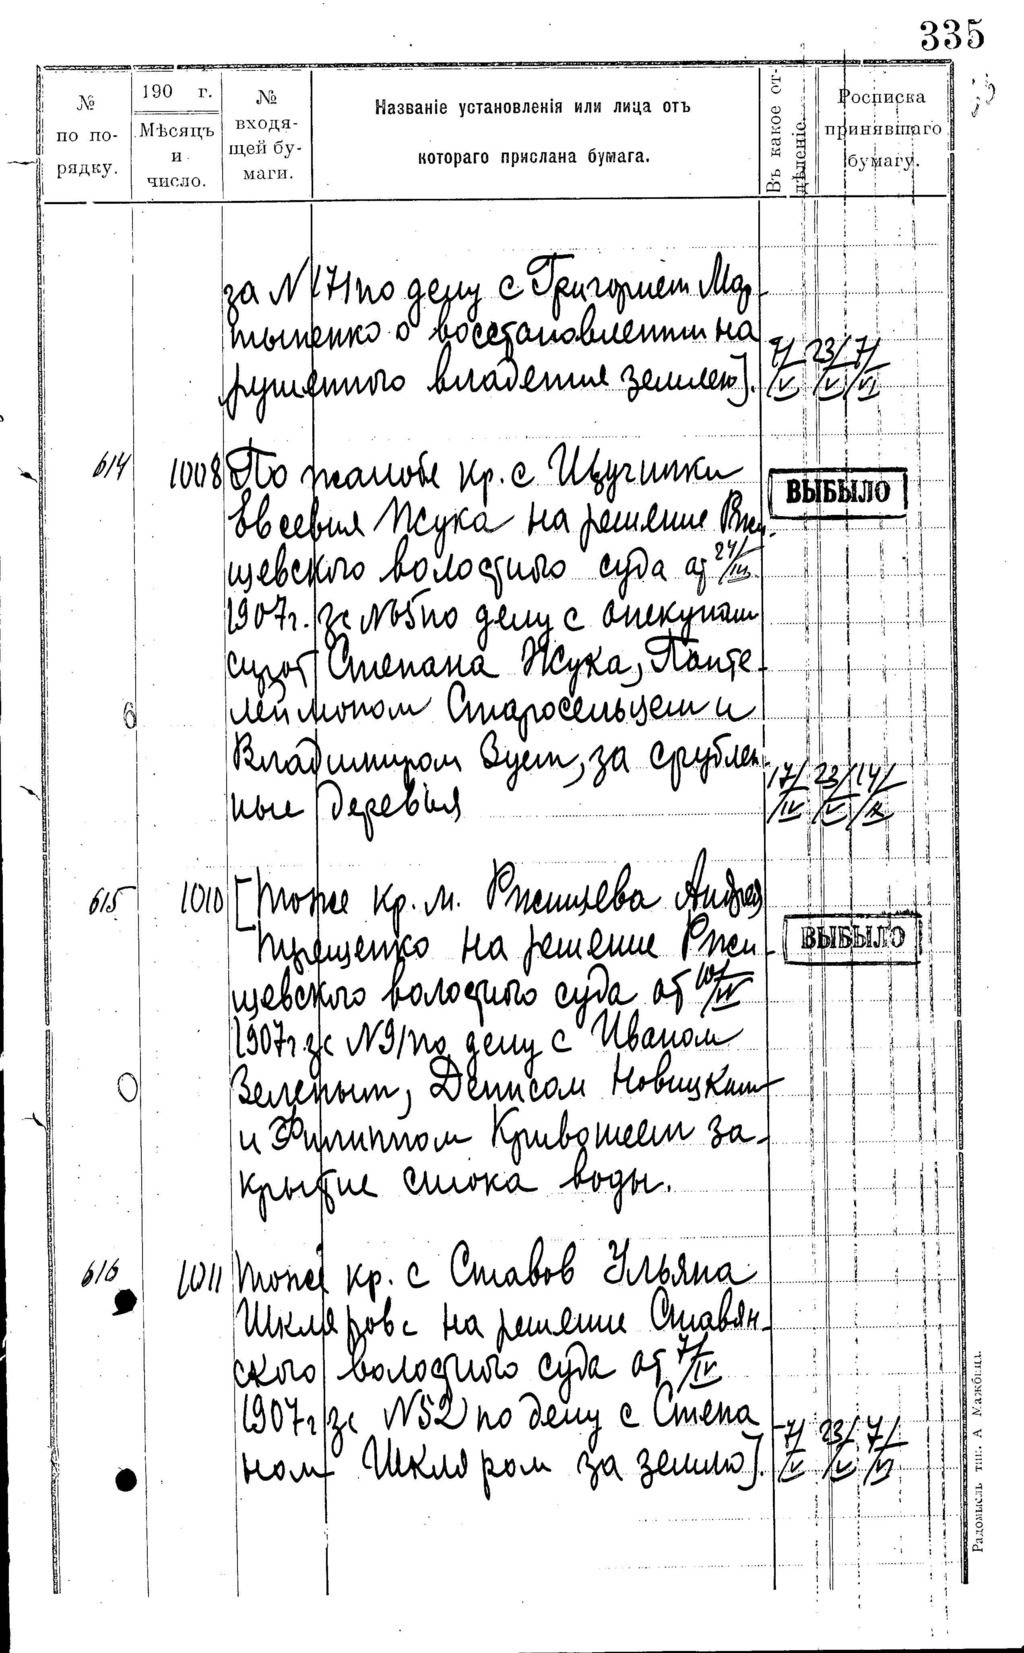 335
№ по порядку.
190 г. Мѣсяцъ и число.
№ входящей бумаги.
Названіе установленія или лица отъ
котораго прислана бумага.
Въ какое отдѣленіе.
Росписка принявшаго бумагу.
за N 171 по делу с Григорием Мар
тыненко о восстановлении на
рушенного владения землею]. 7/V 23/V 7/VI
614 1008 По жалобе кр. с Щучинки
Евсевия Жука на решение Ржи
щевского волостного суда от 24/III
1907г. за N65 по делу с опекунами
сирот Степана Жука, Панте
леймоном Старосельцем и
6
Владимиром Зуем, за срублен
ные деревья 17/IV 23/V 14/IX
ВЫБЫЛО
615 1010 [Тоже кр. м. Ржищева Андрея
Терещенко на решение Ржи
щевского волостного суда от 10/IV
1907г за N91 по делу с Иваном
Зеленым, Денисом Новицким
и Филиппом Кривошеем за
крытие стока воды.
ВЫБЫЛО
616 1011 Тоже кр. с Ставов Ульяна
Шклярова на решение Ставян
ского волостного суда от 7/IV
1907г за N52 по делу с Степа
ном Шкляром за землю]. 7/V 23/V 7/VI
Радомысль тип. А Мажбицъ.